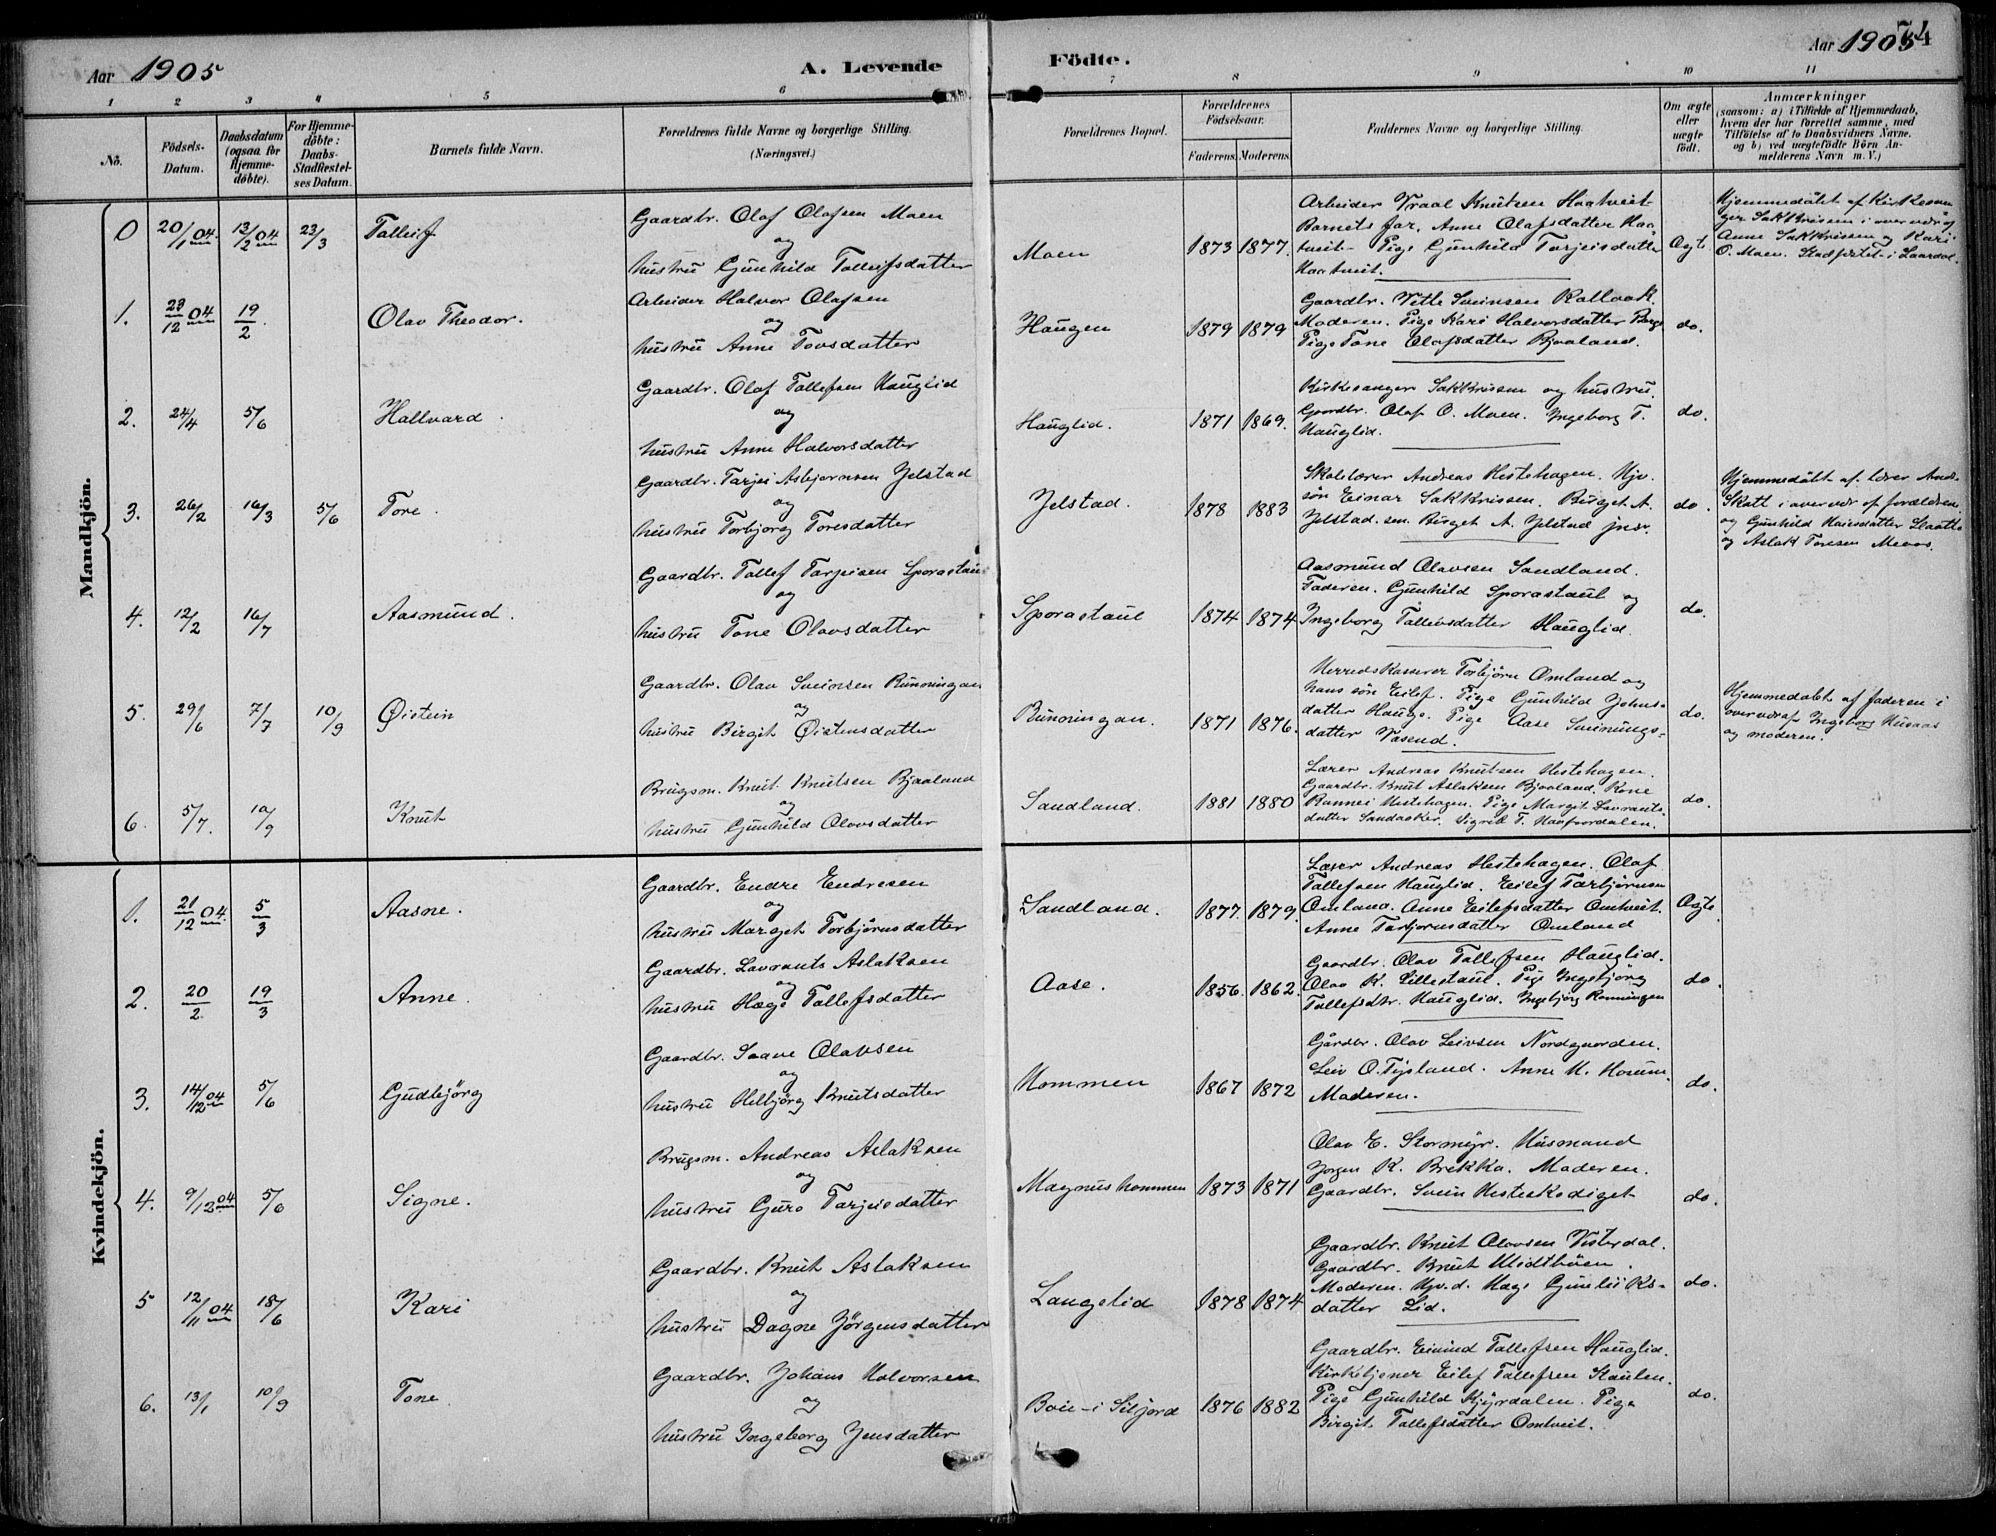 Aar 1905
A. Levende Födte.
Aar 1905
74
1 2 3 4 5 6 7 8 9 10 11
No.
Födsels-Datum.
Daabsdatum (ogsaa for Hjemme-döbte).
For Hjemme-döbte: Daabs-Stadfæstel-ses Datum.
Barnets fulde Navn.
Forældrenes fulde Navne og borgerlige Stilling. (Næringsvei.)
Forældrenes Bopæl.
Forældrenes Födselsaar.
Faderens. Moderens.
Faddernes Navne og borgerlige Stilling.
Om ægte eller uægte födt.
Anmærkninger
(saasom: a) i Tilfælde af Hjemmedaab, hvem der har forrettet samme, med Tilföielse af to Daabsvidners Navne. og b) ved uægtefödte Börn An-melderens Navn m. V.)
Mandkjön.
0 20/1 04 13/2 04 23/3 Talleif
Gaardbr. Olaf Olafsen Moen
og
hustru Gunhild Talleifsdatter
Moen 1873 1877.
Arbeider Vraal Knutsen Haatveit
Barnets far, Anne Olafsdatter Haa-
tveit- Pige Gunhild Tarjeisdatter
Haatveit.
Ægte
Hjemmedöbt af Kirkesan-
ger SakKrissen i overvær af
Anne SakKrissen og Kari
O. Moen. Stadfestet i Laardal.
1. 23/12 04 19/2 Olav Theodor.
Arbeider Halvor Olafsen
og
hustru Anne Tovsdatter
Haugen 1879 1879
Gaardbr. Vetle Sveinsen Rallaak.
Moderen. Pige Kari Halvorsdatter Berge
Pige Tone Olafsdatter Bjaaland.
do.
2. 24/4 5/6 Hallvard
Gaardbr. Olaf Tallefsen Hauglid
og
hustru Anne Halvorsdatter
Hauglid. 1871 1869.
Kirkesanger SakKrissen og hustru.
Gaardbr. Olaf O. Moen. Ingeborg T.
Hauglid.
do.
3. 26/2 16/3 5/6 Tore
Gaardbr. Tarjei Asbjornsen Jelstad
og
hustru Torbjorg Toresdatter
Jelstad. 1878 1883
Skolelærer Andreas Hestehagen. Ujv.
sön Einar SakKrissen. Birget A.
Jelstad sen. Birget A. Jelstad jnr.
do.
Hjemmedöbt af lærer And.
Skatt i overvær af forældrene
og Gunhild
og Aslak Toresen Meaas.
4. 12/2 16/7 Aasmund.
Gaardbr. Tallef Tarjeisen Sporastaul
og
hustru Tone Olavsdatter
Sporastaul 1874 1874
Aasmund Olavsen Sandland.
Faderen. Gunhild Sporastaul og
Ingeborg Talleivsdatter Hauglid.
do.
5. 29/6 7/7 10/9 Øistein
Gaardbr. Olav Sveinsen Runningan
og
hustru Birgit Øistensdatter
Runningan. 1871 1876.
Herredskasserer Torbjörn Omland og
hans sön Eilef. Pige Gunhild Johns-
datter Hauge. Pige Aase Sveinungs-
datter Vasend.
do.
Hjemmedöbt af faderen i
overvær af Ingeborg Husaas
og moderen.
6. 5/7. 10/9 Knut
Brugsm. Knut Knutsen Bjaaland
og
hustru Gunhild Olavsdatter
Sandland. 1881 1880
Lærer Andreas Knutsen Hestehagen.
Gaardbr. Knut Aslaksen Bjaaland. Kone
Rannei Hestehagen. Pige Margit Lavrants-
datter Sandaaker. Sigrid T. Haafoordalen.
do.
Kvindekjön.
1. 21/12 04 5/3 Aasne.
Gaardbr. Endre Endresen
og
hustru Margit Torbjörnsdatter
Sandland. 1877. 1879.
Lærer Andreas Hestehagen. Olaf
Tallefsen Hauglid. Eilef Torbjörnsen
Omland. Anne Eilefsdatter Omtveit.
Anne Torbjornsdatter Omland
Ægte
2. 20/2 19/3 Anne.
Gaardbr. Lavrants Aslaksen
og
hustru Hæge Tallefsdatter
Aase. 1856. 1862.
Gaardbr. Olav Tallefsen Hauglid.
Olav K. Lillestaul. Pige Ingebjörg
Tallefsdtr. Hauglid. Ingebjörg Rønningen
do.
3. 14/12 04 5/6 Gudbjörg
Gaardbr. Saave Olavsen
og
hustru Helbjörg Knutsdatter
Kommen 1867 1872
Gårdbr. Olav Leivsen Nordgaarden.
Leiv O. Tysland. Anne K.
Moderen.
do.
4. 9/12 04 5/6 Signe.
Brugsm. Andreas Aslaksen
og
hustru Guro Tarjeisdatter
Magnuskommen 1873 1871
Olav E. Stormyr. Husmand
Jorgen K. Brekka. Moderen.
Gaardbr. Svein Hesteskodiget
do.
5 12/11 04 18/6 Kari
Gaardbr. Knut Aslaksen
og
hustru Dagne Jörgensdatter
Langelid 1878 1874
Gaardbr. Knut Olavsen Vesterdal.
Gaardbr. Knut Midtböen.
Moderen. Ujv. d. Hæge Gunleiks-
datter Lid.
do.
6. 13/1 10/9 Tone
Gaardbr. Johans Halvorsen
og
hustru Ingeborg Jensdatter
Boie i Siljord 1876 1882
Gaardbr. Eivind Tallefsen Hauglid.
Kirketjener Eilef Tallefsen Staulen.
Pige Gunhild Kjyrdalen. Pige
Birgit Tallefsdatter Omtveit.
do.